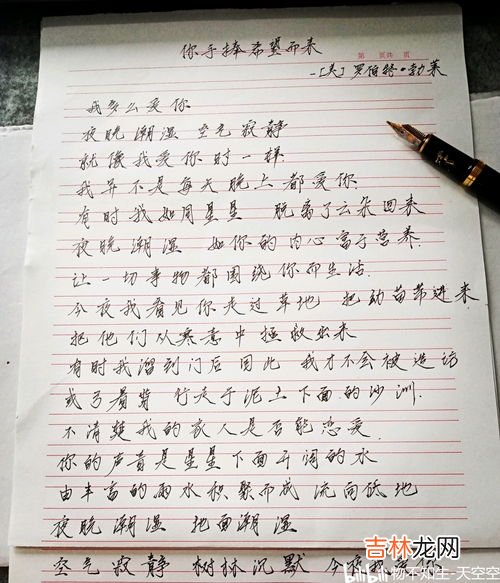 你手捧希望而来
第 页 共 页
-[美]罗伯特·勃莱
我多么爱你
夜晚潮湿 空气寂静
就像我爱你时一样
我并不是每天晚上都爱你
有时我如同星星 脱离了云朵回来
夜晚潮湿 如你的内心富于营养.
让一切事物都围绕你而生活.
今夜我看见你走过草地 把幼苗带进来
把他们从寒意中拯救出来
有时我溜到门后 因此 我才不会被造访
或弓着背 行走于泥土下面的沙洲.
不清楚我的家人是否能恋爱.
你的声音是星星下面开阔的水
由丰富的雨水积聚而成 流向低地
夜晚潮湿 地面潮湿
空气寂静 树林沉默 今夜我爱你
吉林龙网
bilibili 物不的生-天空空